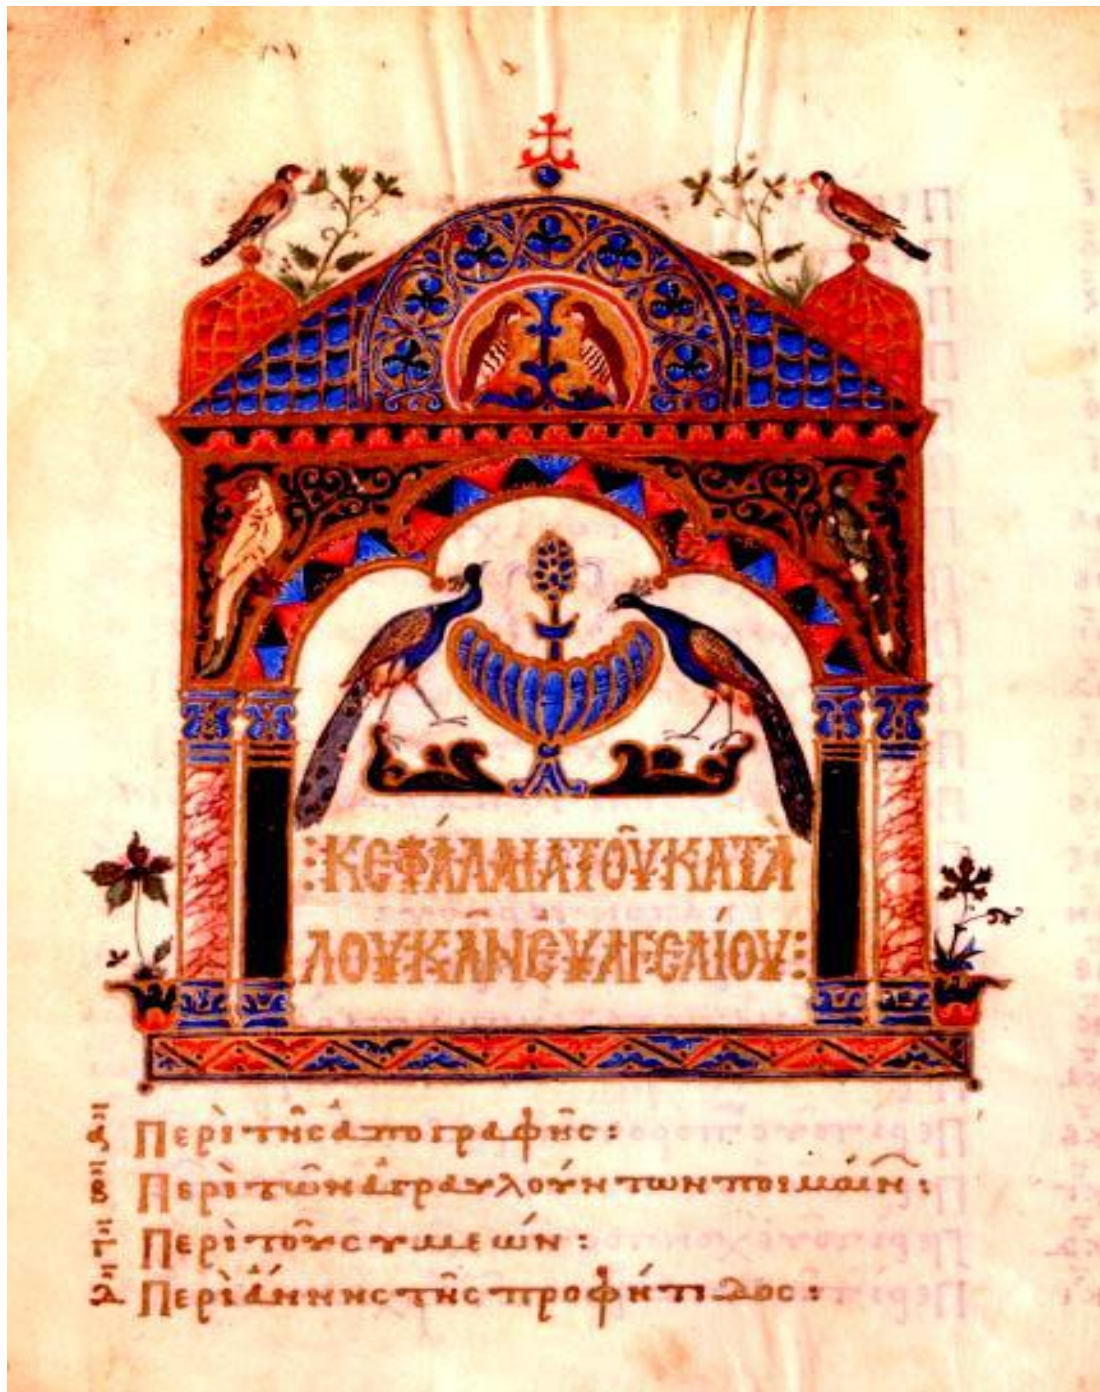 :ΚΕΦΆΛΑΙΑ ΤΟῦ ΚΑΤᾺ
ΛΟΥΚᾶΝ ΕΥΑΓΓΕΛΊΟΥ:
α Περὶ τῆς ἀπογραφῆς:
β Περὶ τῶν ἀγραυλούντων ποιμαίν:
γ Περὶ τοῦ συμεών:
δ Περὶ ἄννης τῆς προφήτιδος: